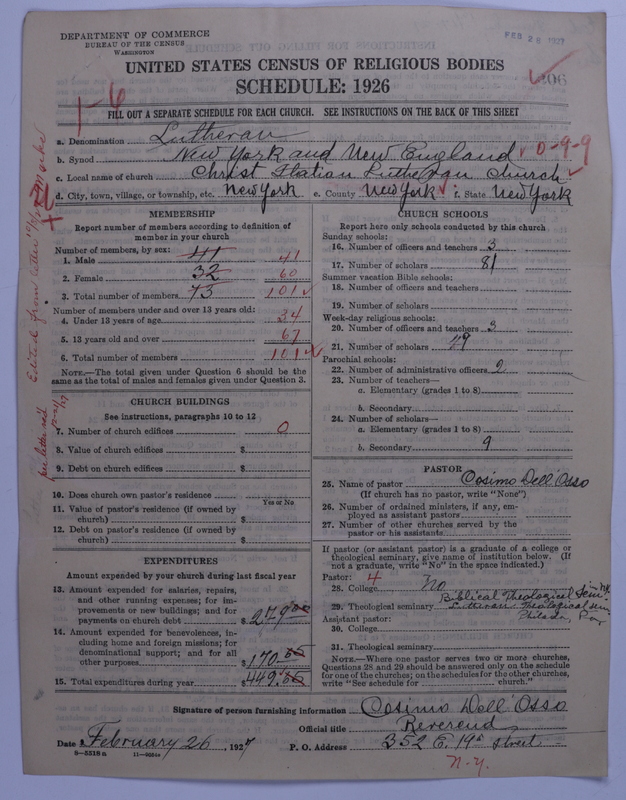 DEPARTMENT OF COMMERCE
BUREAU OF THE CENSUS
WASHINGTON
FEB 28 1927
UNITED STATES CENSUS OF RELIGIOUS BODIES
SCHEDULE: 1926
206
1-6
FILL OUT A SEPARATE SCHEDULE FOR EACH CHURCH. SEE INSTRUCTIONS ON THE BACK OF THIS SHEET
a. Denomination Lutheran
b. Synod New York and New England 0-9-9
c. Local name of church Christ Italian Lutheran Church
d. City, town, village, or township, etc. New York e. County New York f. State New York
MEMBERSHIP
Report number of members according to definition of member in your church
Number of members, by sex:
1. Male 41 41
2. Female 32 60
3. Total number of members 73 101
Number of members under and over 13 years old:
4. Under 13 years of age 34
5. 13 years old and over 67
6. Total number of members 101
NOTE.—The total given under Question 6 should be the same as the total of males and females given under Question 3.
CHURCH BUILDINGS
See instructions, paragraphs 10 to 12
7. Number of church edifices 0
8. Value of church edifices $
9. Debt on church edifices $
10. Does church own pastor's residence
Yes or No
11. Value of pastor's residence (if owned by church) $
12. Debt on pastor's residence (if owned by church) $
EXPENDITURES
Amount expended by your church during last fiscal year
13. Amount expended for salaries, repairs, and other running expenses; for improvements or new buildings; and for payments on church debt $279.00
14. Amount expended for benevolences, including home and foreign missions; for denominational support; and for all other purposes $170.00
15. Total expenditures during year $449.00
CHURCH SCHOOLS
Report here only schools conducted by this church
Sunday schools:
16. Number of officers and teachers 3
17. Number of scholars 81
Summer vacation Bible schools:
18. Number of officers and teachers
19. Number of scholars
Week-day religious schools:
20. Number of officers and teachers 3
21. Number of scholars 79
Parochial schools:
22. Number of administrative officers 2
23. Number of teachers—
a. Elementary (grades 1 to 8)
b. Secondary
24. Number of scholars—
a. Elementary (grades 1 to 8)
b. Secondary 9
PASTOR
25. Name of pastor Cosimo Dell'Osso
(If church has no pastor, write "None")
26. Number of ordained ministers, if any, employed as assistant pastors
27. Number of other churches served by the pastor or his assistants
If pastor (or assistant pastor) is a graduate of a college or theological seminary, give name of institution below. (If not a graduate, write "No" in the space indicated.)
Pastor: 4
28. College No
Biblical Theological Sem. in N.Y.
29. Theological seminary Lutheran Theological Sem
Philada, Pa.
Assistant pastor:
30. College
31. Theological seminary
NOTE.—Where one pastor serves two or more churches, Questions 28 and 29 should be answered only on the schedule for one of the churches; on the schedules for the other churches, write "See schedule for church."
Signature of person furnishing information Cosimo Dell'Osso
Official title Reverend
Date February 26, 1927 P. O. Address 352 E. 19th Street
N.Y.
8—5318a 11—9051a
Edited from letter
per letter rec'd